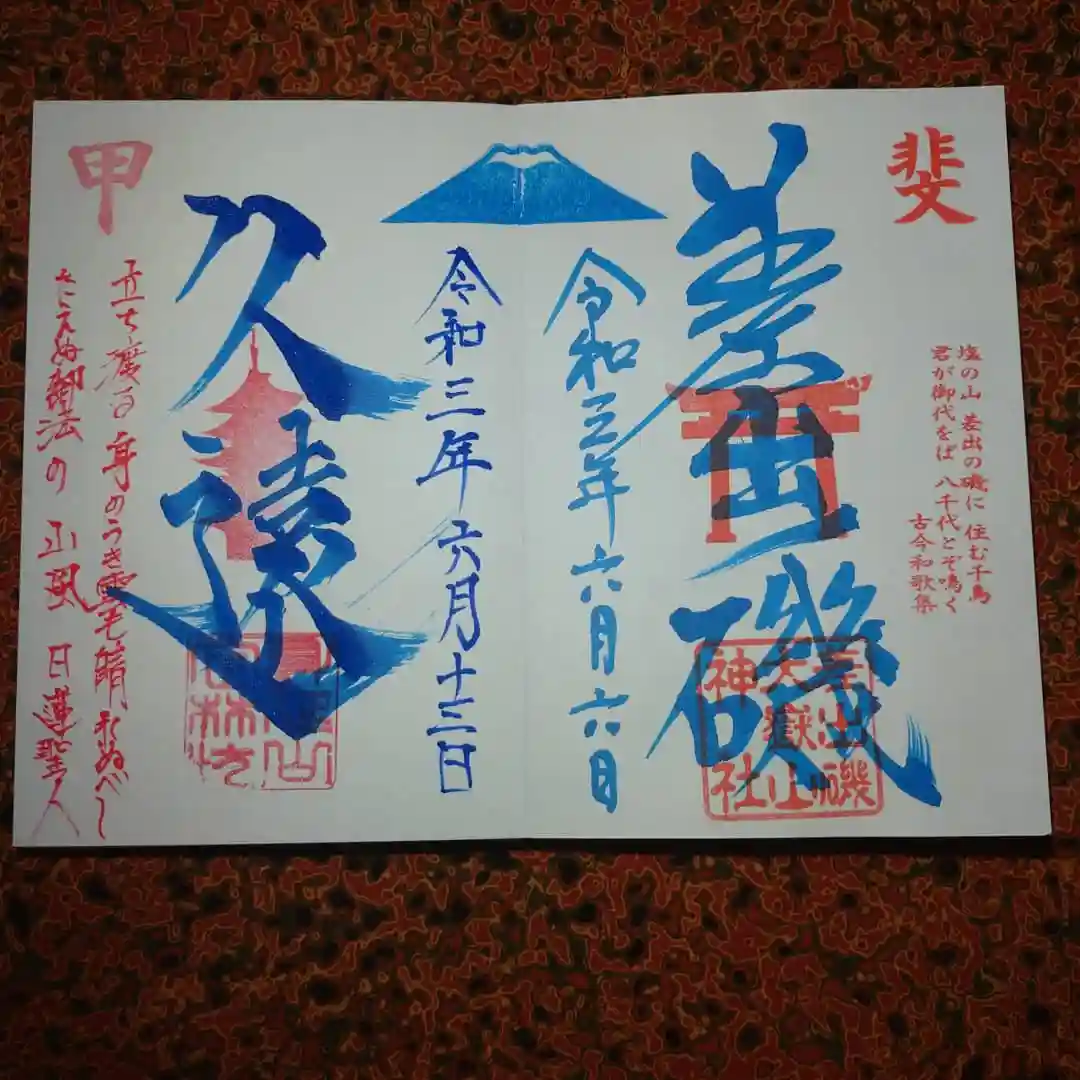 斐
塩の山 差出の磯に 住む千鳥
君が御代をば 八千代とぞ鳴く
古今和歌集
差出磯
差出磯
大嶽山
神社
令和三年六月六日
令和三年六月十三日
久遠
甲
立ち渡る 身のうき雲も 晴れぬべし
たえぬ御法の 山風 日蓮聖人